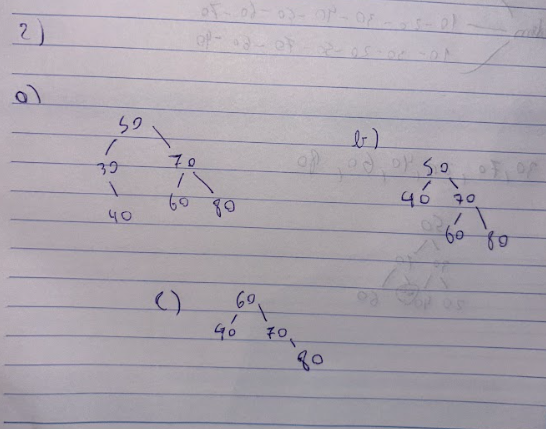 2)
a)
50
30 70
40 60 80
b)
50
40 70
60 80
c)
60
40 70
80